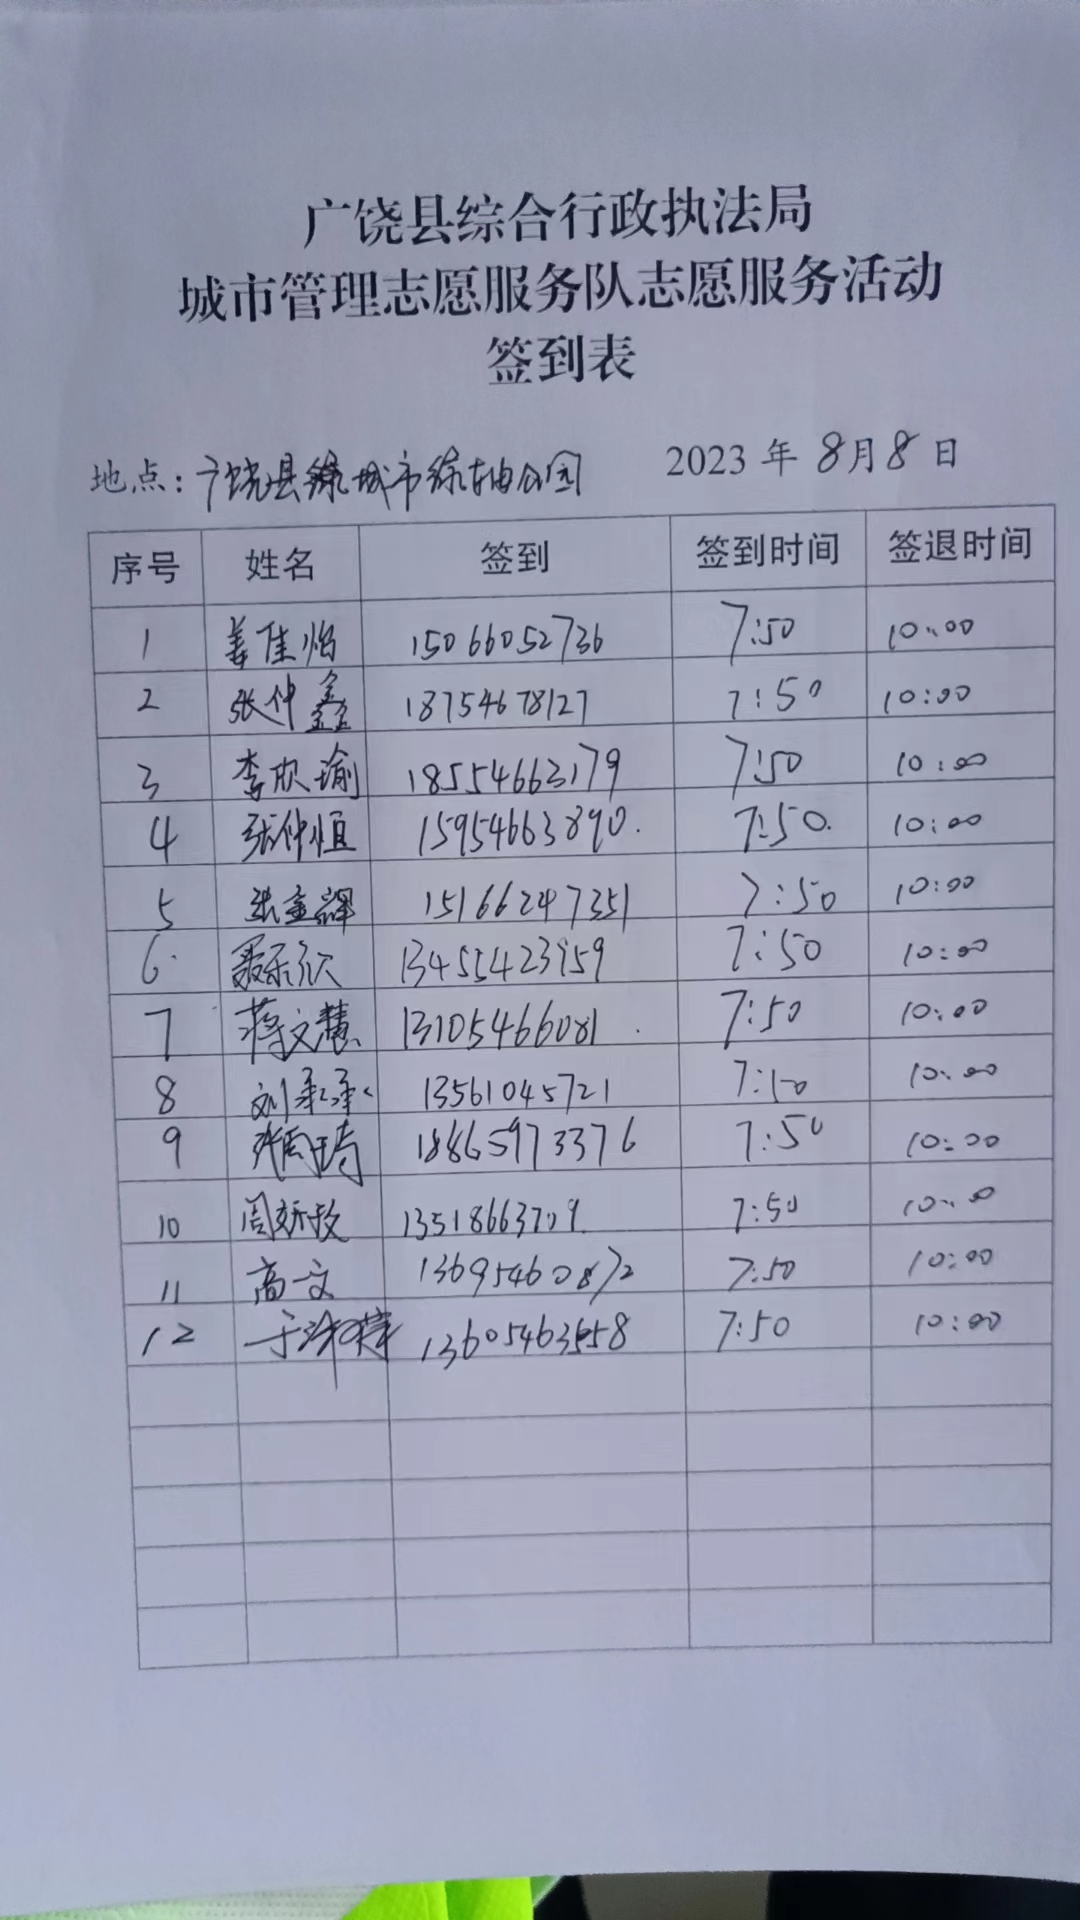 广饶县综合行政执法局
城市管理志愿服务队志愿服务活动
签到表
地点：广饶县绿城市绿轴公园 2023年8月8日
序号 姓名 签到 签到时间 签退时间
1 姜佳怡 15066052736 7:50 10:00
2 张仲鑫 18754678127 7:50 10:00
3 李欣瑜 18554663179 7:50 10:00
4 张仲恒 15954663890. 7:50. 10:00
5 张金译 15166247351 7:50 10:00
6 聂乐欣 13455423959 7:50 10:00
7 蒋文慧 13105466081 7:50 10:00
8 刘承承 13561045721 7:50 10:00
9 张雨琦 18865973376 7:50 10:00
10 周妍玫 13518663709 7:50 10:00
11 高文 13695460872 7:50 10:00
12 于沛 13605463558 7:50 10:00